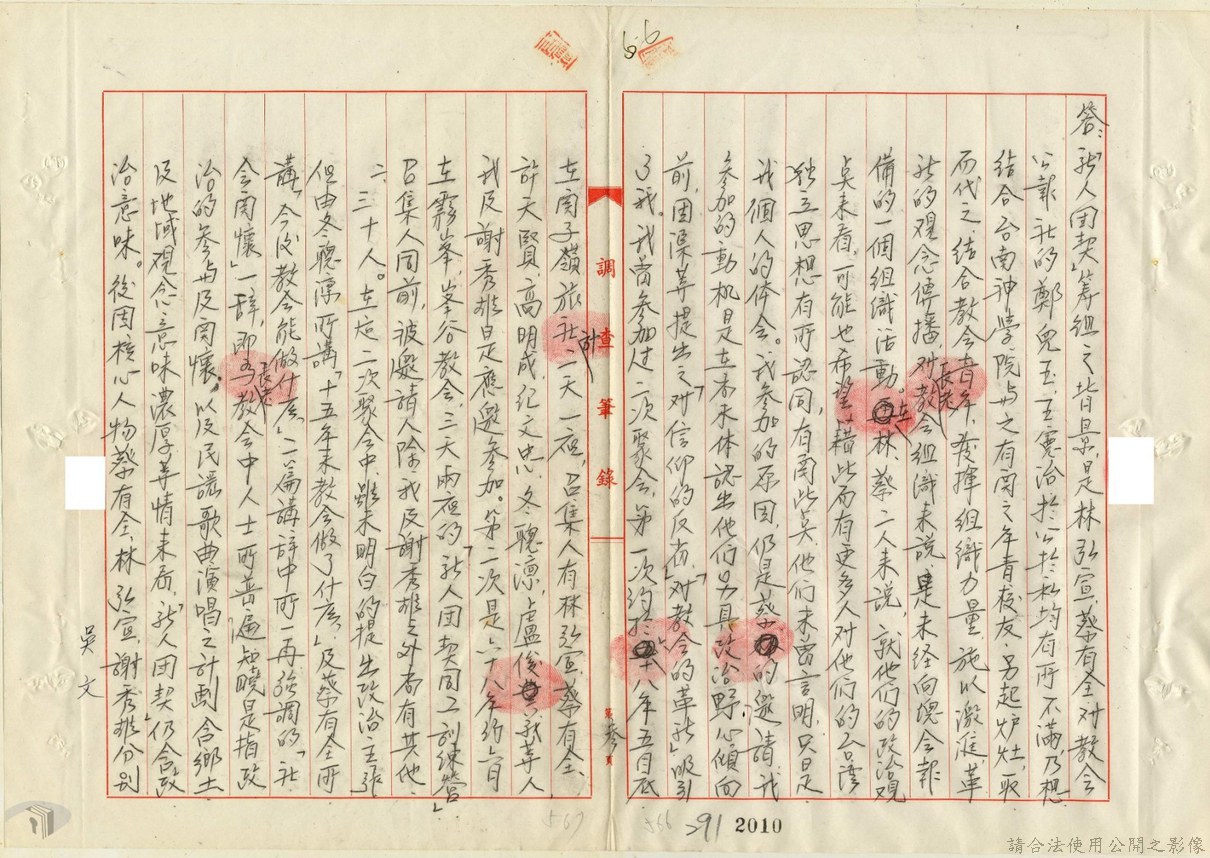 答：「新人团契」筹組之背景，是林弘宣、蔡有全对教会
公報社的鄭兒玉、王憲治於公於私均有所不滿，乃想
結合台南神学院与之有関之年青校友，另起炉灶，取
而代之，結合教会長老青年，发揮組織力量，施以激進、革
新的观念傳播，对教会組織来說是未经向總会報
備的一個組織活動。在林、蔡二人来說，就他们的政治观
点来看，可能也希望藉此而有更多人对他们的台湾
独立思想有所認同，有関此点，他们未曾言明，只是
我個人的体会。我参加的原因，仍是蔡的邀請，我
参加的動机是在未体認出他们另具政治野心傾向
前，因渠等提出之「对信仰的反省」「对教会的革新」吸引
了我。我曾参加过二次聚会，第一次約於六十八年五月底
調查筆錄
第 参 頁
在関子嶺旅社二天一夜，召集人有林弘宣、蔡有全、
許天賢、高明成、紀文忠、冬聰凛、盧俊義計等人
我及謝秀雄是應邀参加。第二次是六十八年約八月
在霧峯，峯谷教会，三天兩夜的「新人団契同工訓練営」
召集人同前，被邀請人除我及謝秀雄之外尚有其他
二、三十人。在這二次聚会中，雖未明白的提出政治主張
但由冬聰凛所講「十五年来教会做了什么」及蔡有全所
講「今後教会能做什么」二篇講辞中所一再強調的「社
会関懷」一辞，即為長老教会中人士所普遍知曉是指政
治的参与及関懷。以及民謡歌曲演唱之計劃含鄉土
及地域观念意味濃厚等情来看，「新人団契」仍含政
治意味。後因核心人物蔡有全、林弘宣、謝秀雄分别
吳文
566
567
291
2010
請合法使用公開之影像